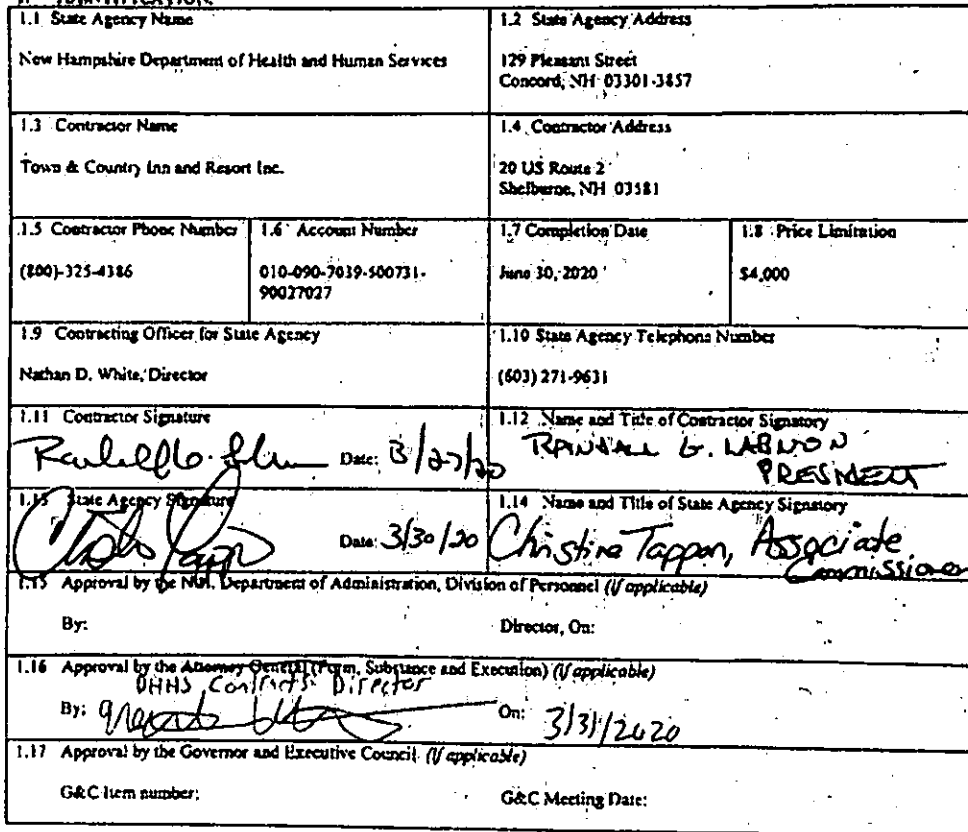 1. IDENTIFICATION.
1.1 State Agency Name
New Hampshire Department of Health and Human Services
1.2 State Agency Address
129 Pleasant Street
Concord, NH 03301-3857
1.3 Contractor Name
Town & Country Inn and Resort Inc.
1.4 Contractor Address
20 US Route 2
Shelburne, NH 03581
1.5 Contractor Phone Number
(800)-325-4386
1.6 Account Number
010-090-7039-500731-
90027027
1.7 Completion Date
June 30, 2020
1.8 Price Limitation
$4,000
1.9 Contracting Officer for State Agency
Nathan D. White, Director
1.10 State Agency Telephone Number
(603) 271-9631
1.11 Contractor Signature
Date: 3/27/20
1.12 Name and Title of Contractor Signatory
RANDALL G. LABNON
PRESIDENT
1.13 State Agency Signature
Date: 3/30/20
1.14 Name and Title of State Agency Signatory
Christine Tappan, Associate
Commissioner
1.15 Approval by the N.H. Department of Administration, Division of Personnel (if applicable)
By: Director, On:
1.16 Approval by the Attorney General (Form, Substance and Execution) (if applicable)
DHHS Contracts Director
By: On: 3/31/2020
1.17 Approval by the Governor and Executive Council (if applicable)
G&C Item number: G&C Meeting Date: